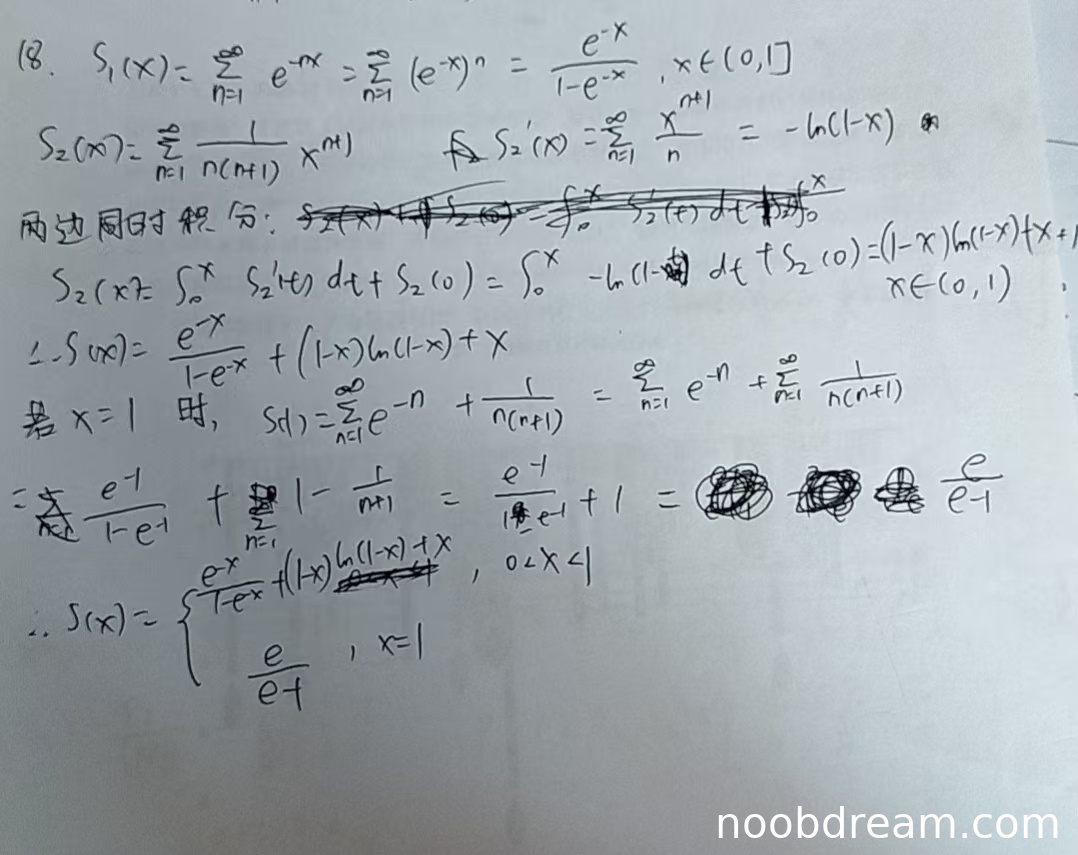 18. S₁(x)= \sum_{n=1}^{∞} e^{-nx} = \sum_{n=1}^{∞} (e^{-x})^n = \frac{e^{-x}}{1-e^{-x}}, x∈(0,1]
S₂(x)= \sum_{n=1}^{∞} \frac{1}{n(n+1)} x^{n+1} S₂'(x) = \sum_{n=1}^{∞} \frac{x^{n+1}}{n} = -ln(1-x)
两边同时积分:
S₂(x)= ∫₀^x S₂'(t) dt + S₂(0) = ∫₀^x -ln(1-t) dt + S₂(0) = (1-x)ln(1-x)+x+1
x∈(0,1)
∴S(x)= \frac{e^{-x}}{1-e^{-x}} + (1-x)ln(1-x)+x
若 x=1 时, S(1)= \sum_{n=1}^{∞} e^{-n} + \frac{1}{n(n+1)} = \sum_{n=1}^{∞} e^{-n} + \sum_{n=1}^{∞} \frac{1}{n(n+1)}
= \frac{e^{-1}}{1-e^{-1}} + \sum_{n=1} 1 - \frac{1}{n+1} = \frac{e^{-1}}{1-e^{-1}} + 1 = \frac{e}{e-1}
∴ S(x)= { \frac{e^{-x}}{1-e^{-x}} + (1-x)ln(1-x)+x , 0<x<1
\frac{e}{e-1} , x=1
noobdream.com